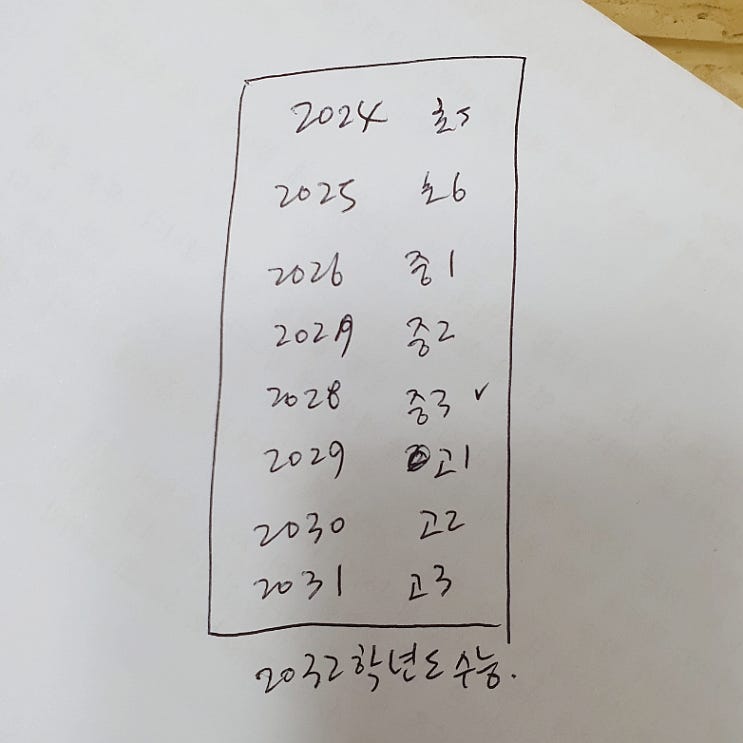 2024 초5
2025 초6
2026 중1
2027 중2
2028 중3 ✓
2029 고1
2030 고2
2031 고3
2032학년도 수능.